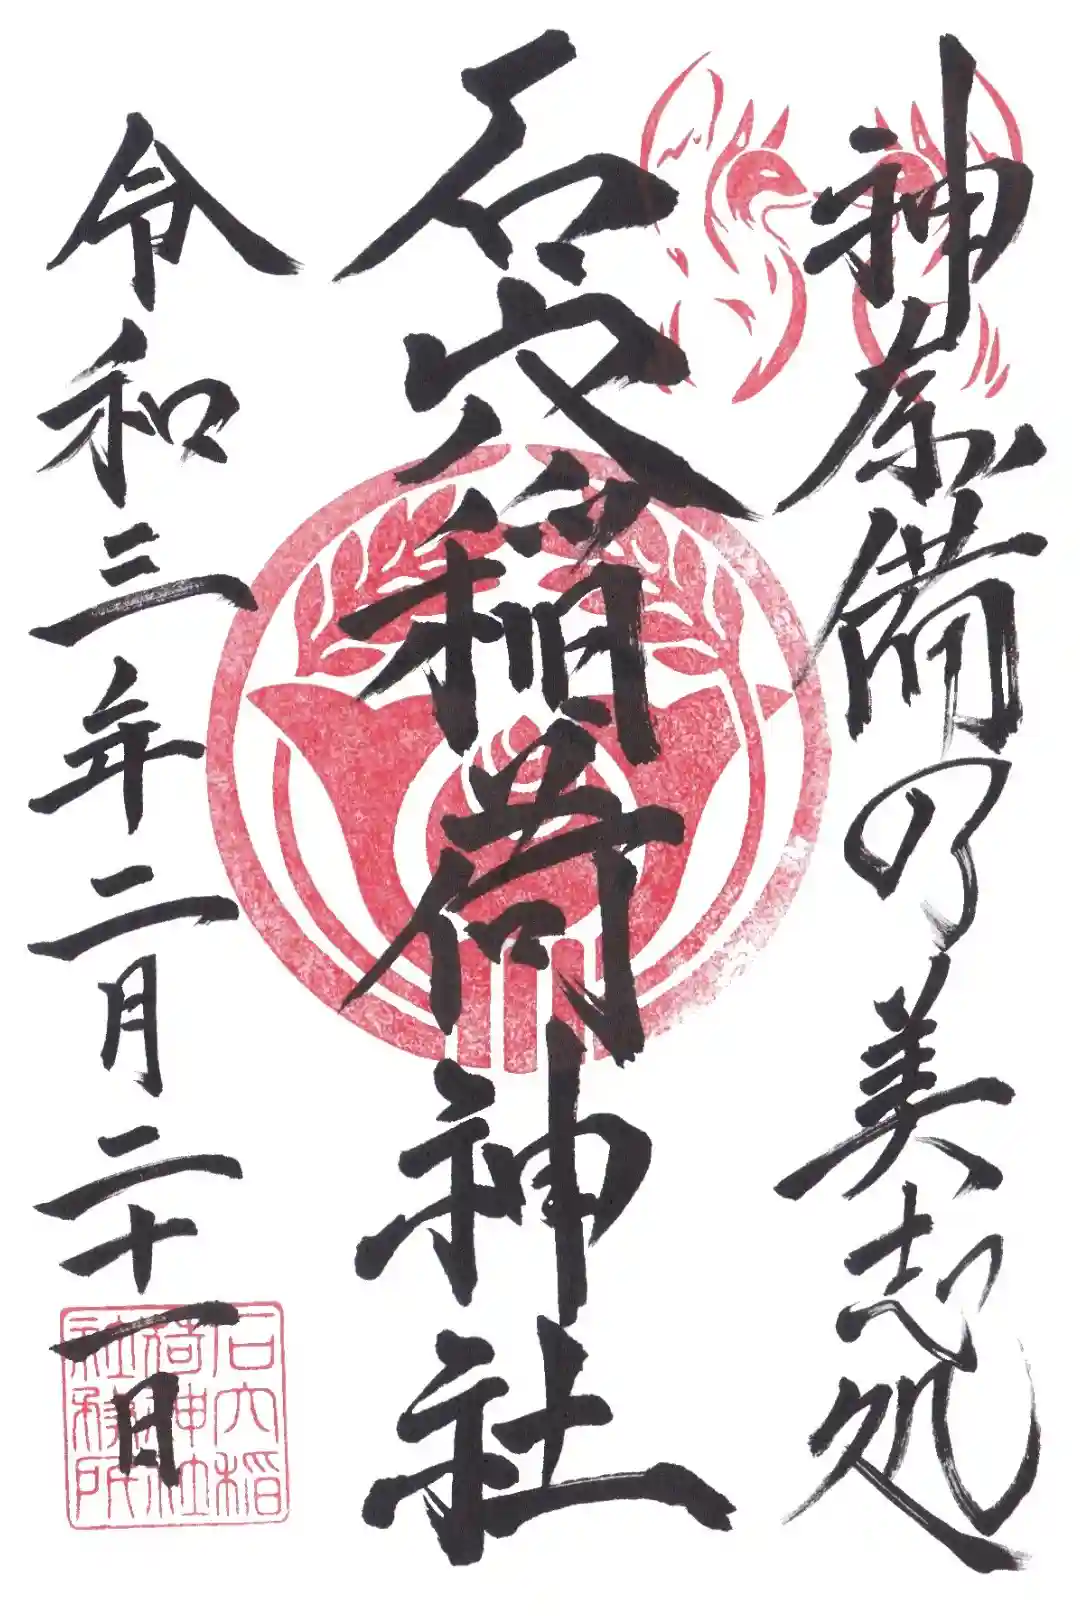 神奈備の美志処
石穴稲荷神社
令和三年二月二十一日
石穴稲
荷神社
社務所